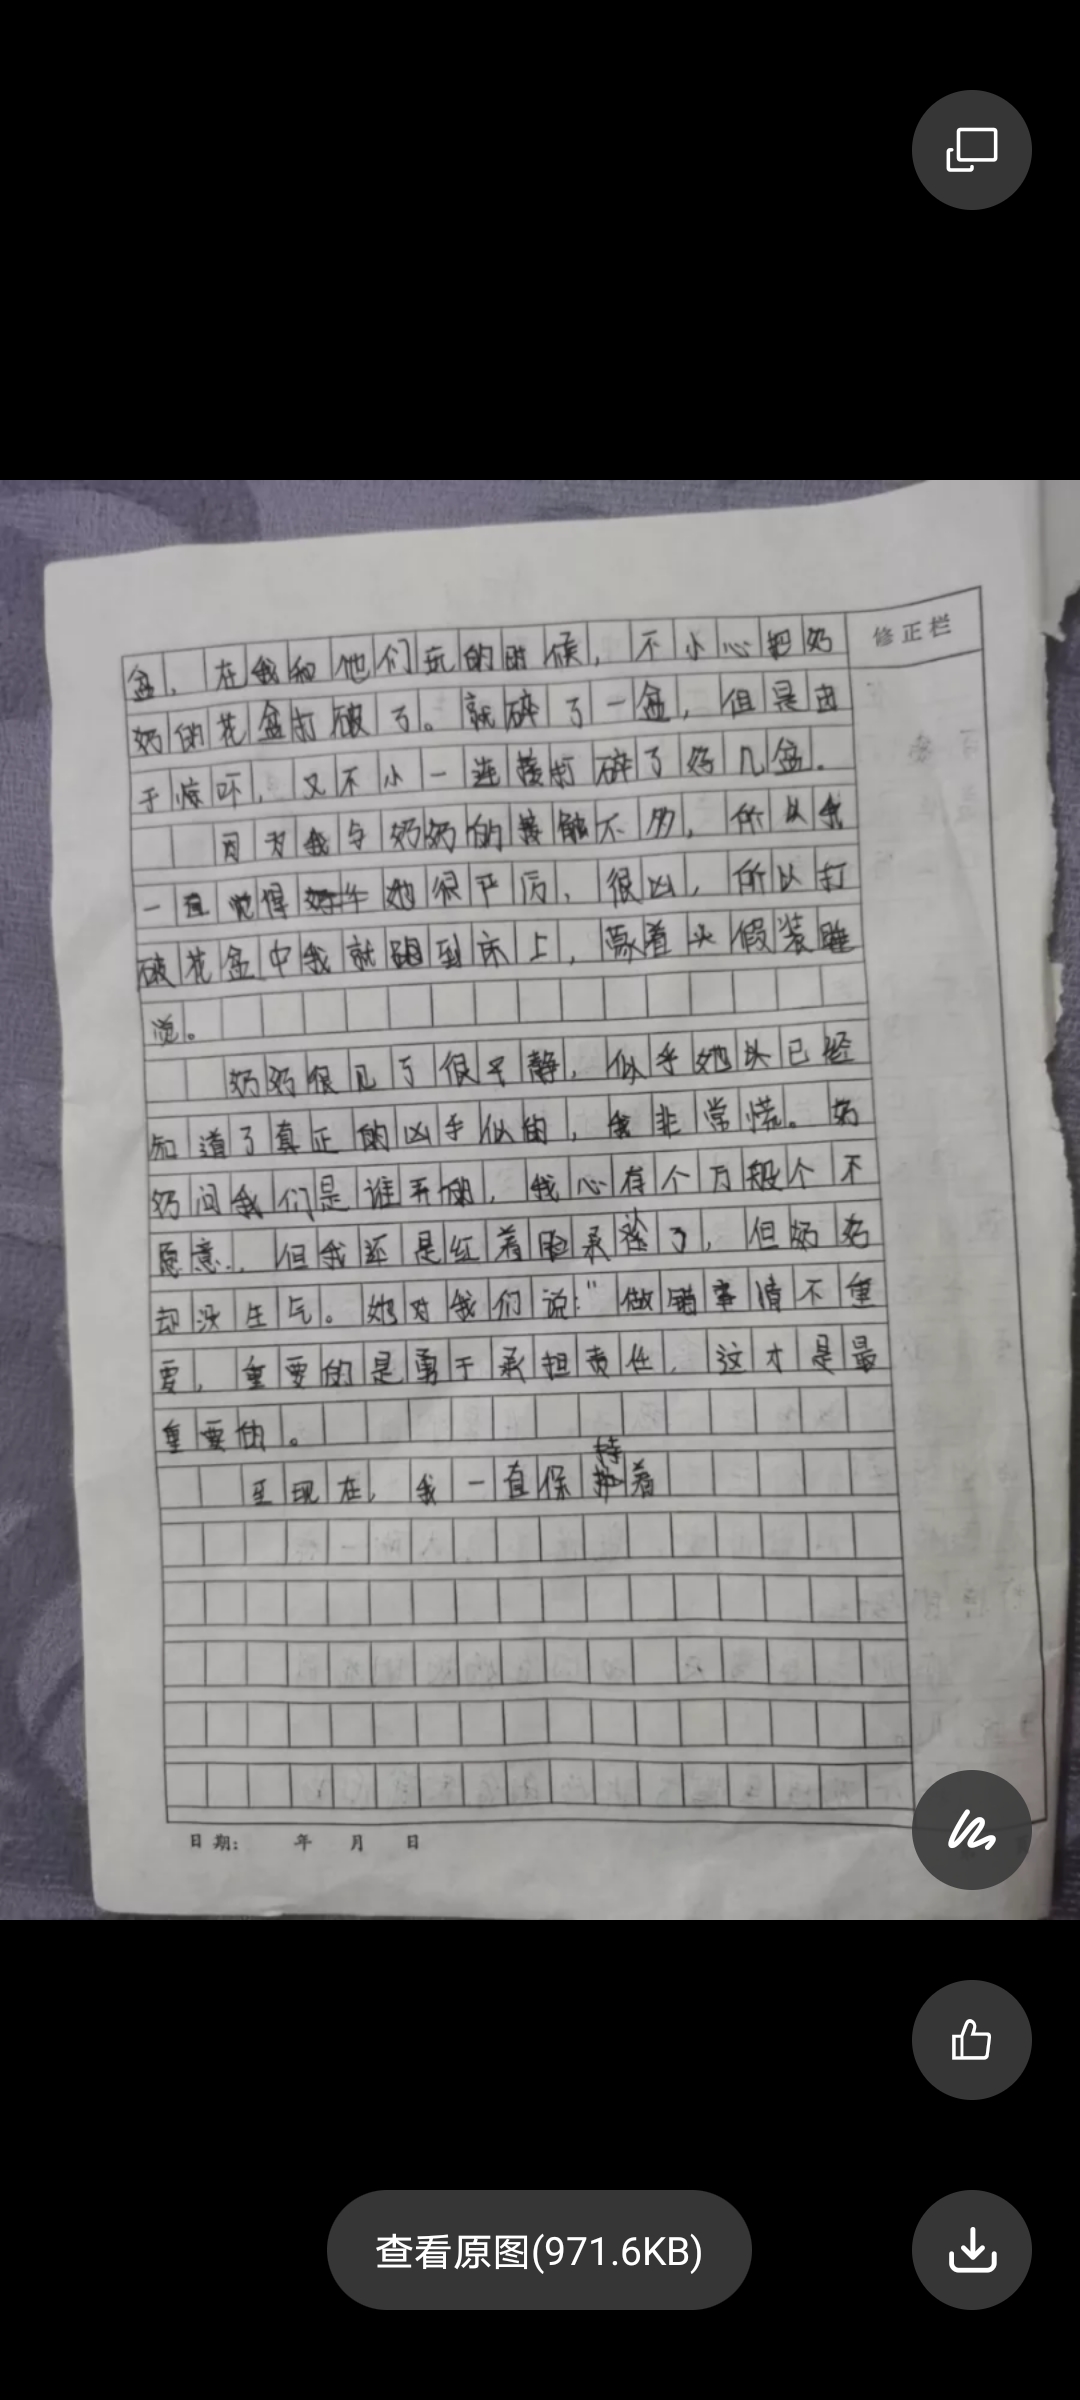 修正栏
盆，在我和他们玩的时候，不小心把奶
奶的花盆打破了。就碎了一盆，但是由
于惊吓，又不小一连接打碎了好几盆.
因为我与奶奶的接触不多，所以我
一直觉得她很严厉，很凶，所以打
破花盆中我就跑到床上，蒙着头假装睡
觉。
奶奶很见了很平静，似乎她头已经
知道了真正的凶手似的，我非常慌。奶
奶问我们是谁弄的，我心存个万般个不
愿意.，但我还是红着脸承了，但奶奶
却没生气。她对我们说:“做错事情不重
要，重要的是勇于承担责任，这才是最
重要的。
至现在，我一直保持着
日期: 年 月 日
查看原图(971.6KB)